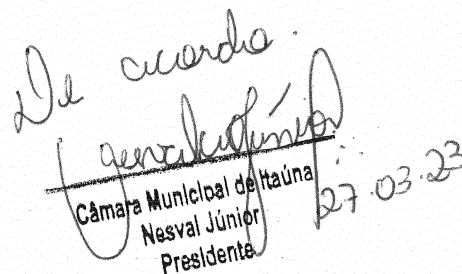 De acordo.
Câmara Municipal de Itaúna
Nesval Júnior
Presidente
27.03.23